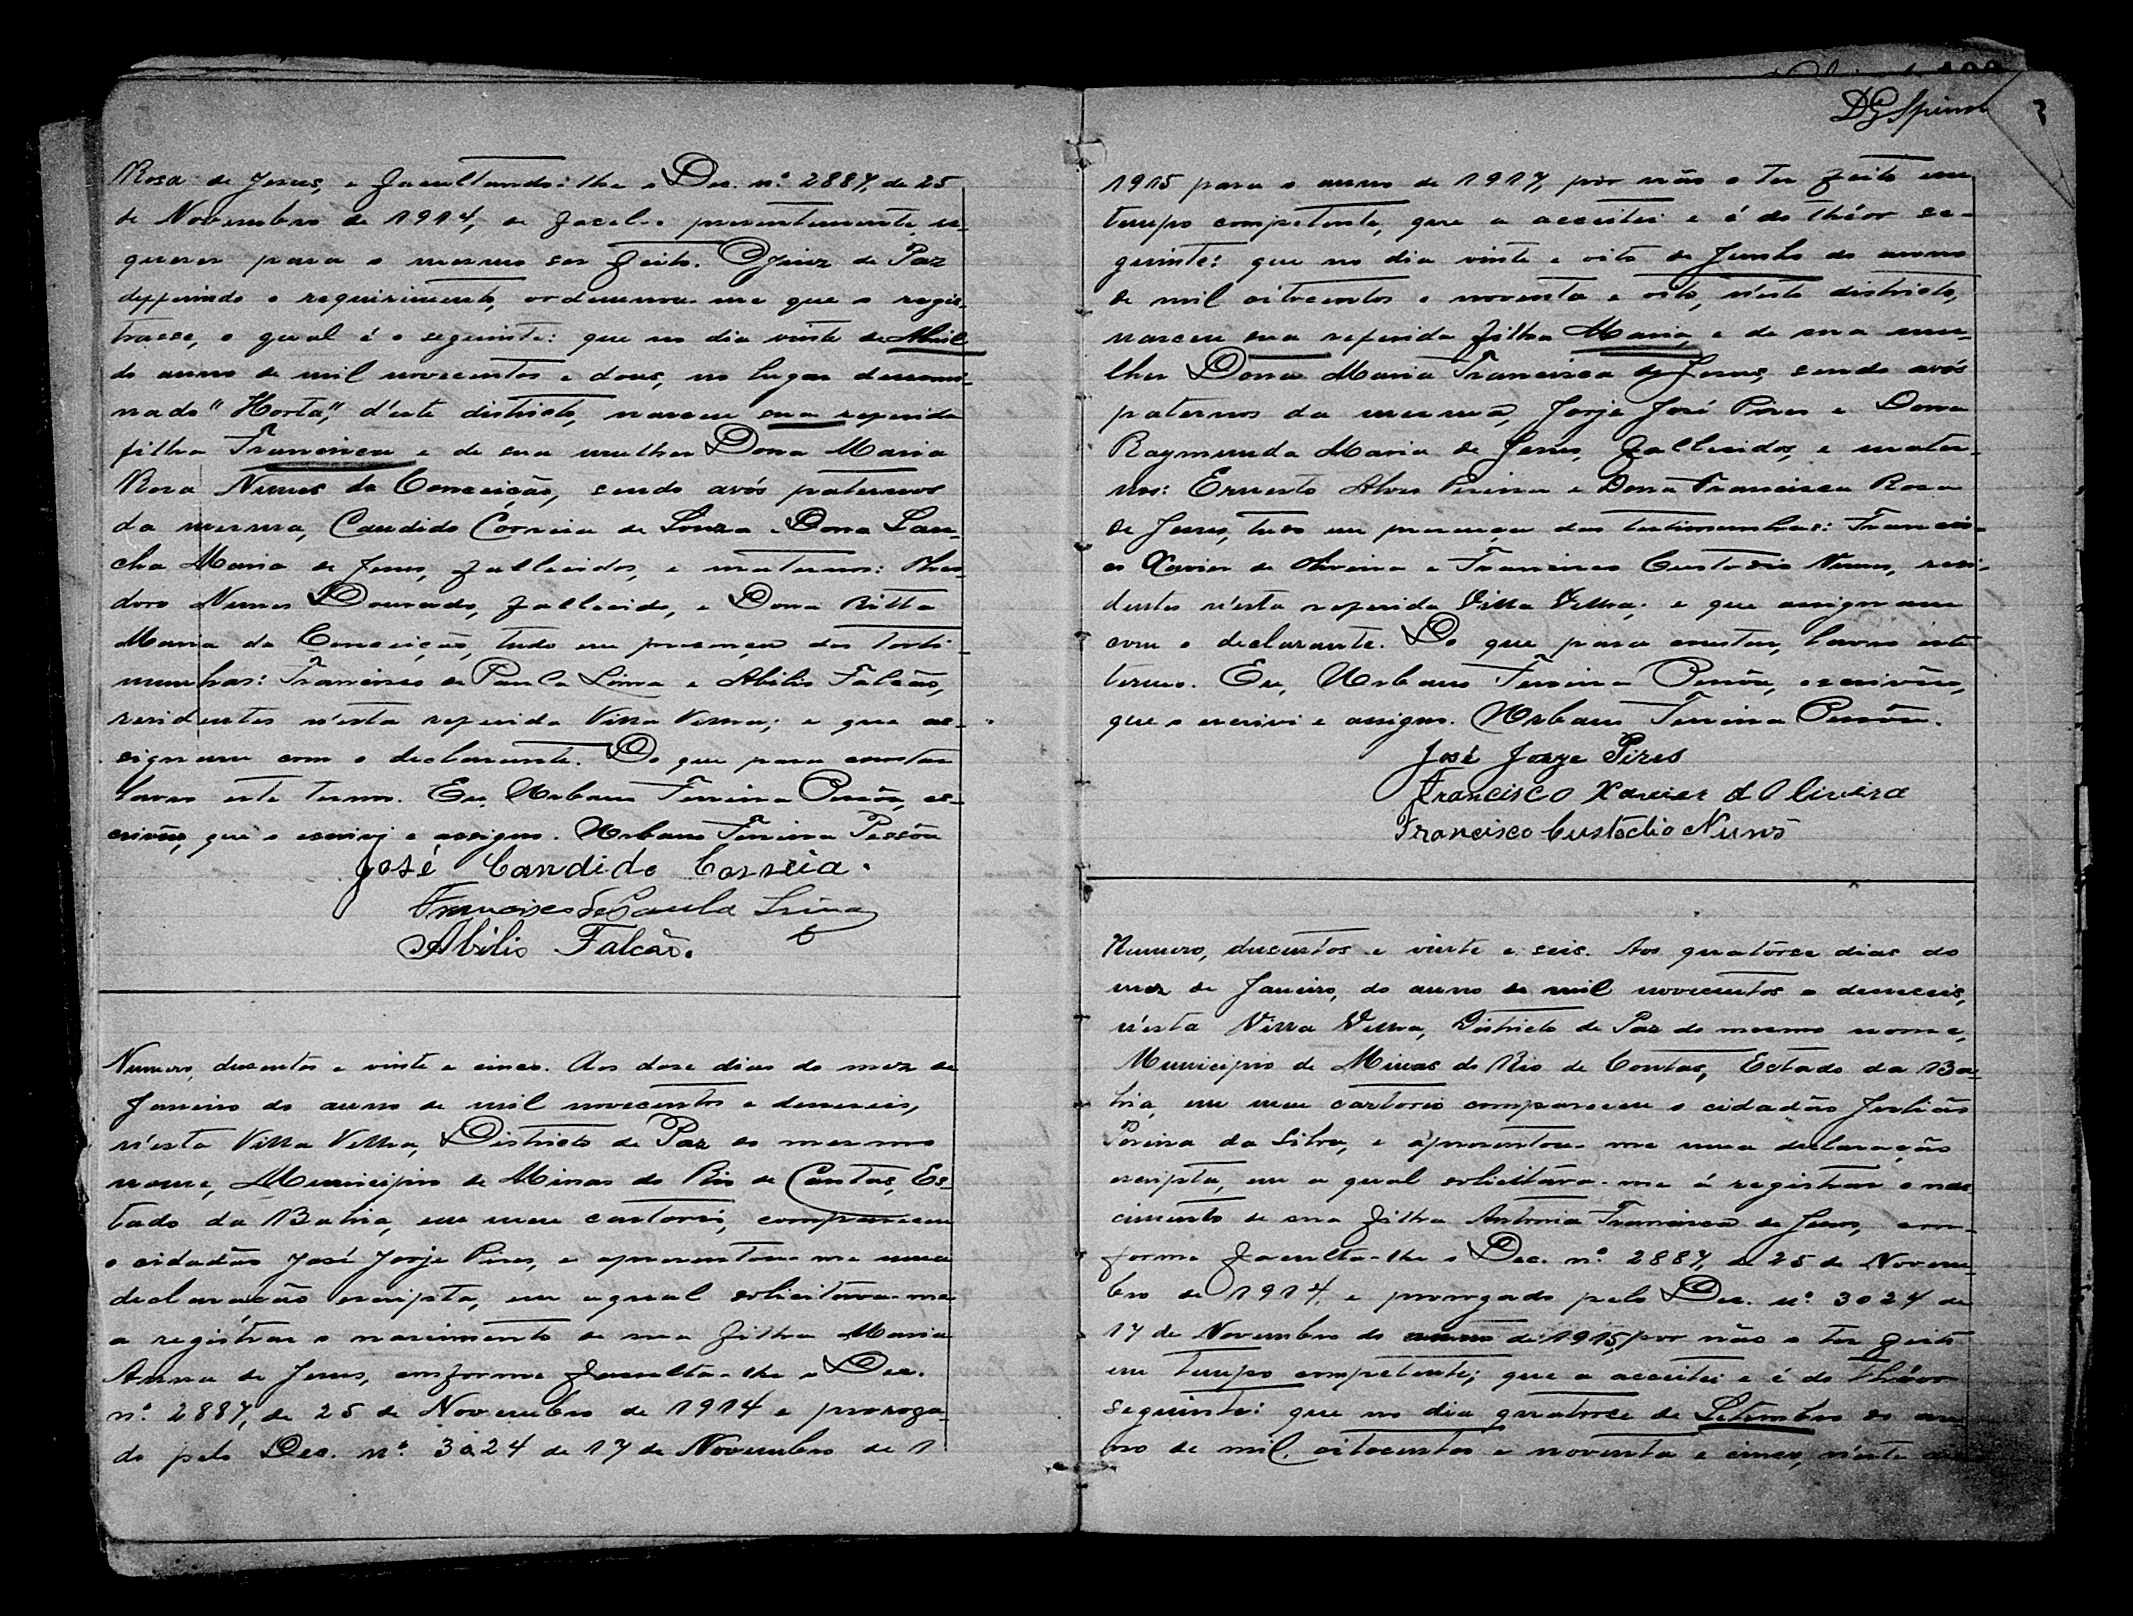 Rosa de Jesus, e facultando-lhe o Dec. nº 2887, de 25
de Novembro de 1914, de fazel-o presentemente re-
querer para o mesmo ser feito. O Juiz de Paz
defferindo o requirimento, ordennou-me que o regis-
trasse, o qual é o seguinte: que no dia vinte de Abril
do anno de mil novecentos e dous, no lugar denomi-
nado "Horta", d'este districto, nasceu sua referida
filha Francisca e de sua mulher Dona Maria
Rosa Nunes da Conceição, sendo avós paternos
da mesma, Candido Corrêia de Souza e Dona San-
cha Maria de Jesus, fallecidos, e maternos:
doro Nunes Dourado, fallecido, e Dona Ritta
Maria da Conceição, tudo em presença das teste-
munhas: Francisco de Paula Lima e Abilio Falcão,
residentes n'esta referida Villa Velha; e que as-
signam com o declarante. Do que para constar
lavro este termo. Eu, Urbano Ferreira Pessôa, es-
crivão, que o escrivi e assigno. Urbano Ferreira Pessôa
José Candido Correia.
Francisco de Paula Lima
Abilio Falcão.
Numero, dusentos e vinte e cinco. Aos dose dias do mez de
Janeiro do anno de mil novecentos e deseseis,
n'esta Villa Velha, Districto de Paz do mesmo
nome, Municipio de Minas do Rio de Contas, Es-
tado da Bahia, em meu cartorio, compareceu
o cidadão José Jorje Pires, e apresentou-me uma
declaração escripta, em a qual solicitava-me
a registrar o nascimento de sua filha Maria
Anna de Jesus, conforme faculta-lhe o Dec.
nº 2887, de 25 de Novembro de 1914 e proroga-
do pelo Dec. nº 3024 de 17 de Novembro de 1
DG Spinola
1915 para o anno de 1917, por não o ter feito em
tempo competente, que a acceitei e é do theôr se-
guinte: que no dia vinte e oito de Junho do anno
de mil oitocentos e noventa e oito, n'este districto,
nasceu sua referida filha Maria, e de sua mu-
lher Dona Maria Francisca de Jesus, sendo avós
paternos da mesma, Jorje José Pires e Dona
Raymunda Maria de Jesus, fallecidos, e mater-
nos: Ernesto Alves Pereira e Dona Francisca Rosa
de Jesus, tudo em presença das testimunhas: Francis-
co Xavier de Oliveira e Francisco Custodio Nunes, resi-
dentes n'esta referida Villa Velha; e que assignam
com o declarante. Do que para constar, lavro este
termo. Eu, Urbano Ferreira Pessôa, escrivão,
que o escrivi e assigno. Urbano Ferreira Pessôa.
José Jorge Pires
Francisco Xavier d Oliveira
Francisco Custodio Nunes
Numero, dusentos e vinte e seis. Aos quatorse dias do
mez de Janeiro, do anno de mil novecentos e deseseis,
n'esta Villa Velha, Districto de Paz do mesmo nome,
Municipio de Minas do Rio de Contas, Estado da Ba-
hia, em meu cartorio compareceu o cidadão Julião
Pereira da Silva, e apresentou-me uma declaração
escripta, em a qual solicitava-me á registrar o nas-
cimento de sua filha Antonia Francisca de Jesus, con-
forme faculta-lhe o Dec. nº 2887, de 25 de Novem-
bro de 1914, e prorogado pelo Dec. nº 3024 de
17 de Novembro do anno de 1915, por não o ter feito
em tempo competente; que a acceitei e é do theôr
seguinte: que no dia quatorse de Setembro do an-
no de mil oitocentos e noventa e cinco, n'este